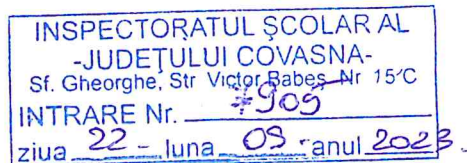 INSPECTORATUL ŞCOLAR AL
-JUDEŢULUI COVASNA-
Sf. Gheorghe, Str Victor Babeş Nr 15C
INTRARE Nr. 905
ziua 22 - luna 05 anul 2023